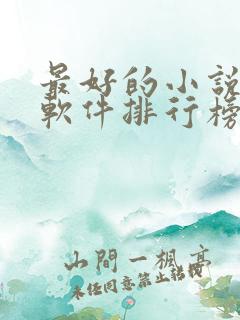 最好的小說
軟件排行榜
山間一楓亭
未任同意禁止轉載